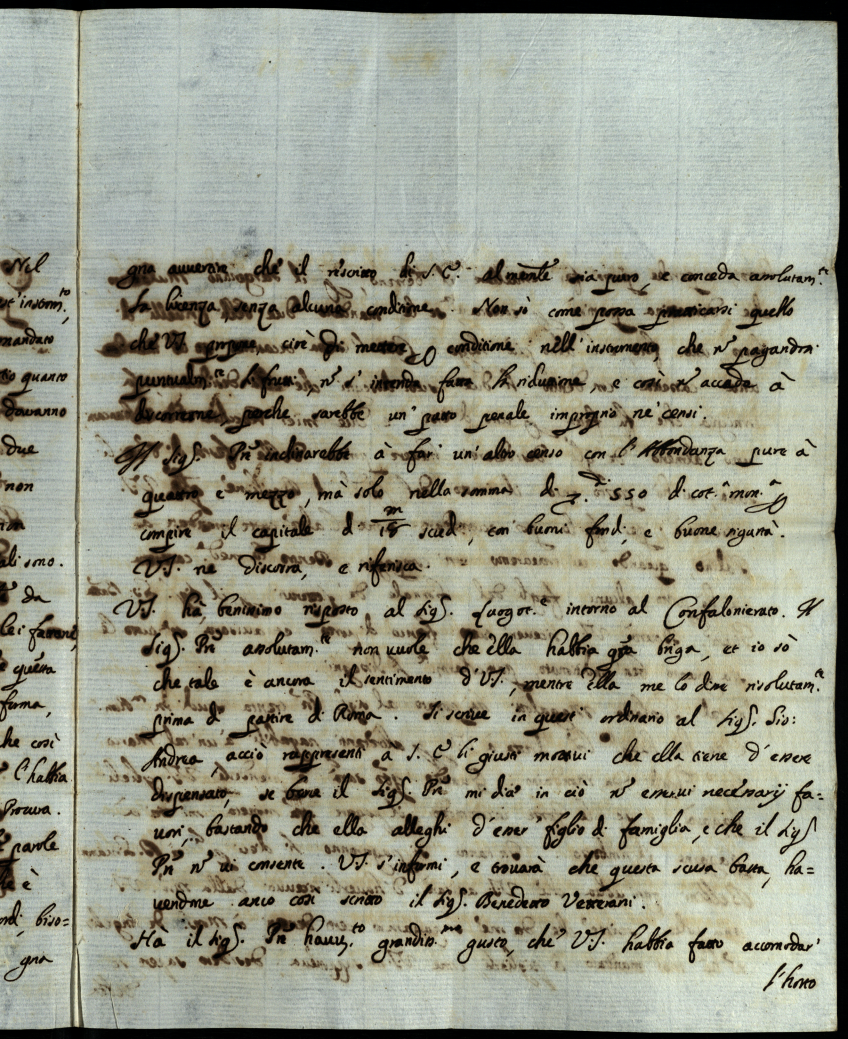 Nil
mandato
quanto
douranno
due
non
ali sono.
da
questa
forma,
he così
l'habbia
Procura.
parole
è
biso=
gna
gna auuertire che il rescritto di S. E. almente sia puro, e conceda assolutam.te
la licenza senza alcuna conditione. Non sò come possa pratticarsi quello
che VS. propone cioè di mettere conditione nell'instrumento, che nõ pagandosi
puntualm.te li frutti, nõ s'intenda fatta la riduzione, e così nõ accada à
discorrerne, perche sarebbe un' patto penale improprio ne' censi.
Il Sig.r P͠re inclinarebbe à far un'altro censo con l'Abbondanza pure à
quattro e mezzo, mà solo nella somma di 550 di cot.a mon.a
compire il capitale di m/18 scudi, con buoni fondi, e buone sigurtà.
VS. ne discorra, e riferisca.
VS. hà benissimo risposto al Sig.r Luogot.e intorno al Confalonierato. Il
Sig.r P͠re assolutam.te non vuole che ella habbia q͠sta briga, et io sò
che tale è ancora il sentimento d'VS., mentre ella me lo disse risolutam.te
prima di partire di Roma. Si scriue in questo ordinario al Sig.r Gio:
Andrea, acciò rappresenti a S. E. li giusti motiui che ella tiene d'essere
dispensato, se bene il Sig.r P͠re mi dice in ciò nõ esserui necessarij fa=
uori, bastando che ella alleghi d'esser' figlio di famiglia, e che il Sig.r
P͠re nõ ui consente. VS. s'informi, e trouarà che questa scusa basta, ha=
uendone anco così scritto il Sig.r Benedetto Veterani.
Hà il Sig.r P͠re hauuto grandiss.mo gusto, che VS. habbia fatto accomodar'
l'horto